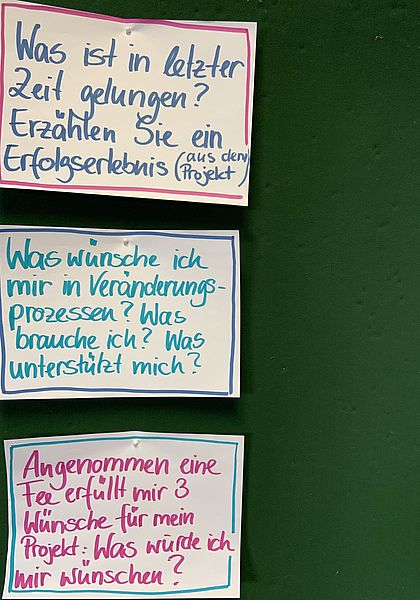 Was ist in letzter
Zeit gelungen?
Erzählen Sie ein
Erfolgserlebnis (aus dem
Projekt)
Was wünsche ich
mir in Veränderungs-
prozessen? Was
brauche ich? Was
unterstützt mich?
Angenommen eine
Fee erfüllt mir 3
Wünsche für mein
Projekt: Was würde ich
mir wünschen?